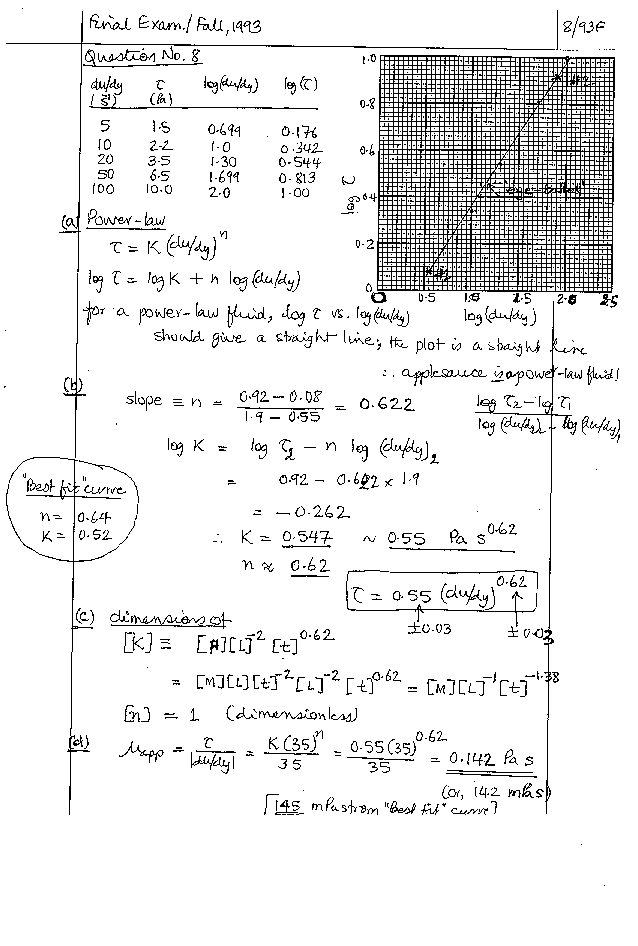 Final Exam./Fall, 1993
8/93F
Question No. 8
du/dy τ log(du/dy) log(τ)
(s⁻¹) (Pa)
5 1.5 0.699 0.176
10 2.2 1.0 0.342
20 3.5 1.30 0.544
50 6.5 1.699 0.813
100 10.0 2.0 1.00
1.0
0.8
0.6
0.4
0.2
0
log τ
0 0.5 1.0 1.5 2.0 2.5
log(du/dy)
(a) Power-law
τ = K(du/dy)ⁿ
log τ = log K + n log(du/dy)
for a power-law fluid, log τ vs. log(du/dy)
should give a straight line; the plot is a straight line
∴ applesauce is a power-law fluid!
(b)
slope ≡ n = (0.92 - 0.08)/(1.9 - 0.55) = 0.622
(log τ₂ - log τ₁)/(log(du/dy)₂ - log(du/dy)₁)
log K = log τ₂ - n log(du/dy)₂
= 0.92 - 0.622 × 1.9
= -0.262
∴ K = 0.547 ~ 0.55 Pa s^0.62
n ≈ 0.62
"Best fit" curve
n = 0.64
K = 0.52
τ = 0.55 (du/dy)^0.62
±0.03 ±0.03
(c) dimensions of
[K] ≡ [F][L]⁻² [t]^0.62
= [M][L][t]⁻² [L]⁻² [t]^0.62 = [M][L]⁻¹ [t]^-1.38
[n] = 1 (dimensionless)
(d) μapp = τ/|du/dy| = K(35)ⁿ/35 = 0.55(35)^0.62/35 = 0.142 Pa s
(or, 142 mPa s)
[145 mPas from "Best fit" curve]